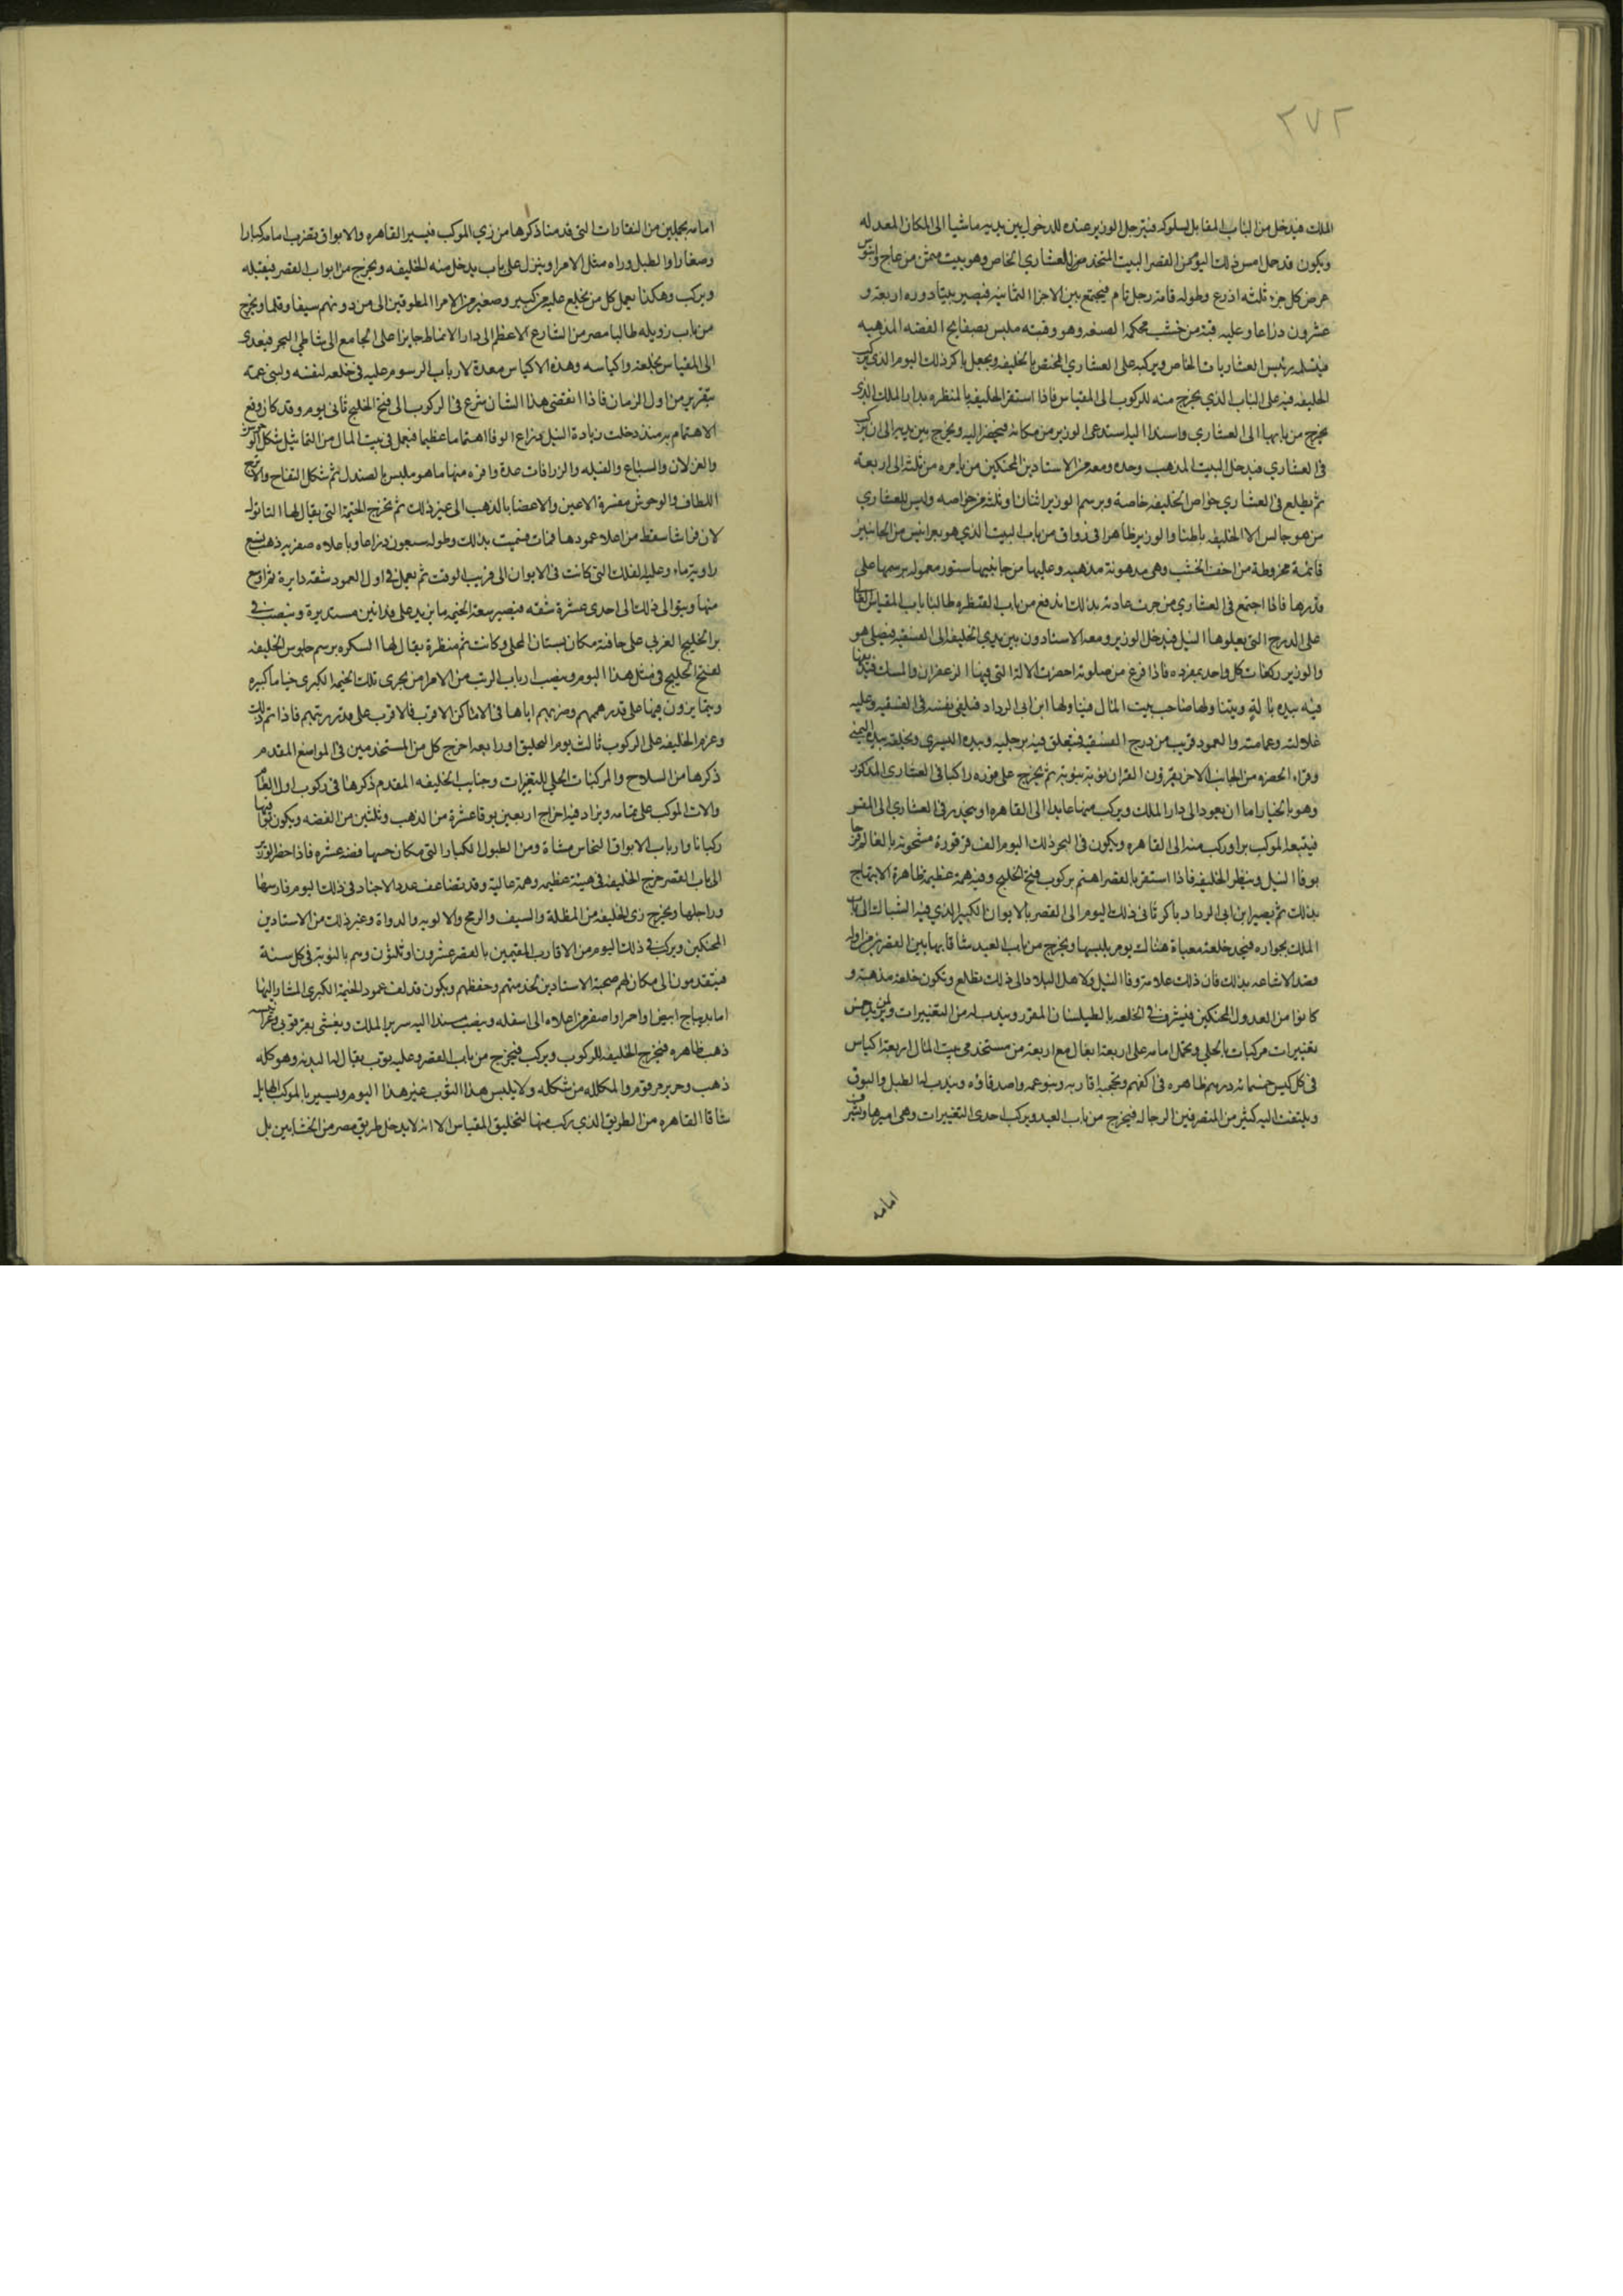 ٢٧٢
الملك فيدخل من الباب المقابل لسلوكه فيترجل الوزير عنده للدخول بين يديه ماشيا الى المكان المعد له
ويكون قد حمل امس ذلك اليوم من القصر البيت المتخذ للعشاري الخاص وهو بيت مثمن من عاج وابنوس
عرض كل جزء ثلثه اذرع وطوله قامة رجل تام فيجتمع بين الاجزا الثمانيه فيصير بيتا دوره اربعة و
عشرون ذراعا وعليه قبة من خشب محكم الصنعه وهو وقبته ملبس بصفايح الفضه المذهبه
فيتسلمه رئيس العشاريات الخاص ويركبه على العشاري المختص بالخليفه ويجعل باكر ذلك اليوم الذي يركب
الخليفه فيه على الباب الذي يخرج منه للركوب الى المقياس فاذا استقر الخليفه بالمنظره بدار الملك الذي
يخرج من بابها الى العشاري واسند اليه استدعى الوزير من مكانه فيحضر اليه ويخرج بين يديه الى ان يركب
في العشاري فيدخل البيت المذهب وحده ومعه من الاستادين المحنكين من يامره من ثلثة الى اربعة
ثم يطلع في العشاري خواص الخليفه خاصة وبرسم الوزير اثنان او ثلثة من خواصه وليس للعشاري
من هو جالس الا الخليفه باطنا والوزير ظاهرا في رواق من باب البيت الذي هو بعرانيس من الجانبين
قائمة مخروطة من اخف الخشب وهي مدهونة مذهبه وعليها من جانبيها ستور معموله برسمها على
قدرها فاذا اجتمع في العشاري من جرت عادته بذلك اندفع من باب القنطره طالبا باب المقياس العالي
على الدرج التي يعلوها النيل فيدخل الوزير ومعه الاستادون بين يدي الخليفه الى الفسقيه فيصلي هو
والوزير ركعات كل واحد بمفرده فاذا فرغ من صلوته احضرت الالة التي فيها الزعفران والمسك فيديفها
فيه بيده بالة ويتناولها صاحب بيت المال فيناولها ابن ابي الرداد فيلقي نفسه في الفسقيه وعليه
غلالته وعمامته والعمود قريب من درج الفسقيه فيتعلق فيه برجليه ويده اليسرى ويخلقه بيده اليمنى
وقراء الحضره من الجانب الاخر يقرؤن القران نوبة بنوبة ثم يخرج على فوره راكبا في العشاري المذكور
وهو بالخيار اما ان يعود الى دار الملك ويركب منها عايدا الى القاهره او ينحدر في العشاري الى المقس
فيتبعه الموكب برا وركب منه الى القاهره ويكون في البحر ذلك اليوم الف قرقورة مشحونه بالعالم فرحا
بوفا النيل وبنظر الخليفه فاذا استقر بالقصر اهتم بركوب فتح الخليج وفيه همة عظيمة ظاهرة الابتهاج
بذلك ثم يصير ابن ابي الرداد باكر ثاني ذلك اليوم الى القصر بالايوان الكبير الذي فيه الشباك الى باب
الملك بجواره فيجد خلعة معباة هناك يوم بلبسها ويخرج من باب العيد شاقا بها بين القصرين من اوله
قصد الاشاعه بذلك فان ذلك علامة وفا النيل ولاهل البلاد الى ذلك تطلع وتكون خلعة مذهبة و
كانوا من العدول المحنكين فيشرف في الخلعه بالطيلسان المقرر ويندب له من التغييرات ولمن يريد خمس
تغييرات مركبات بالحلي ويحمل امامه على اربعة بغال مع اربعة من مستخدمي بيت المال اربعة اكياس
في كل كيس خمسمائه درهم ظاهره في اكفهم وبحجبه اقاربه وبنو عمه واصدقاؤه ويندب له الطبل والبوق
ويلتفت اليه كثير من المتصرفين الرجاله فيخرج من باب العيد ويركب احدى التغييرات وهي اميرها ويشرف
امامه
امامه بجملين من النقارات التي قدمنا ذكرها من زي الموكب فيسير القاهره والابواق تضرب امامه كبارا
وصغارا والطبل وراه مثل الامرا وينزل على باب يدخل منه الخليفه ويخرج من ابواب القصر فيقبله
ويركب وهكذا يعمل كل من يخلع عليه من كبير وصغير من الامرا المطوقين الى من دونهم سيفا وقلما ويخرج
من باب زويله طالبا مصر من الشارع الاعظم الى دار الانماط جايزا على الجامع الى شاطي البحر فيعدى
الى المقياس بخلعته واكياسه وهذه الاكياس معدة لارباب الرسوم عليه في خلعه لنفسه ولبني عمه
بتقرير من اول الزمان فاذا انقضى هذا الشان شرع في الركوب الى فتح الخليج ثاني يوم وقد كان وقع
الاهتمام به منذ دخلت زيادة النيل ذراع الوفا اهتماما عظيما فيعمل في بيت المال من التماثيل شكل الوحوش
والغزلان والسباع والفيله والزرافات عدة وافره منها ما هو ملبس بالصندل ثم شكل التفاح والاترج
اللطاف والوحوش مفسرة الاعين والاعضا بالذهب الى غير ذلك ثم تخرج الخيمة التي يقال لها القاتول
لان فراشا سقط من اعلا عمودها فمات فسميت بذلك وطوله سبعون ذراعا وباعلاه صفريه ذهب تسع
راوية ماء وعليه الفلك التي كانت في الايوان الى قريب الوقت ثم يعمل في اول العمود شقه دايرة ثم اوسع
منها ويتوالى ذلك الى احدى عشرة شقه فيصير سعة الخيمه ما يزيد على فدانين مستديرة وينصب في
بر الخليج الغربي على حافته مكان بستان المحلي وكانت ثم منظرة يقال لها السكره برسم جلوس الخليفه
لفتح الخليج في مثل هذا اليوم وينصب ارباب الرتب من الامرا من بحري تلك الخيمه الكبرى خياما كبيره
ويتمايزون فيها على قدر هممهم وضربهم اياها في الاماكن الاقرب فالاقرب على قدر رتبهم فاذا تم ذلك
وعزم الخليفه على الركوب ثالث يوم التخليق او رابعه اخرج كل من المستخدمين في المواضع المقدم
ذكرها من السلاح والمركبات الحلي للتغيرات وجنايب الخليفه المقدم ذكرها في ركوب اول العام
والات الموكب على تمامه ويزاد فيه اخراج اربعين بوقا عشرة من الذهب وثلثين من الفضه ويكون بواقيها
ركبانا وارباب الابواق النحاس مشاة ومن الطبول الكبار التي مكان خشبها فضه عشره فاذا حضر الوزير
الى باب القصر خرج الخليفه في هيئة عظيمه وهمة عالية وقد تضاعف عدد الاجناد في ذلك اليوم فارسها
وراجلها ويخرج زي الخليفه من المظلة والسيف والرمح والالويه والدواة وغير ذلك من الاستادين
المحنكين ويركب في ذلك اليوم من الاقارب المقيمين بالقصر عشرون او ثلثون وهم بالنوبة في كل سنة
فيتقدمون الى مكان لهم صحبة الاستادين لخدمتهم وحفظهم ويكون قد لف عمود الخيمة الكبرى المشار اليها
اما بديباج ابيض او احمر او اصفر من اعلاه الى اسفله وينصب مسندا اليه سرير الملك ويغشى بقرقوبي وعرانيسه
ذهب ظاهره فيخرج الخليفه للركوب ويركب فيخرج من باب القصر وعليه ثوب يقال له البدنه وهو كله
ذهب وحرير مرقوم والمظله من شكله ولا يلبس هذا الثوب غير هذا اليوم ويسير بالموكب الهايل
شاقا القاهره من الطريق الذي ركب منها لتخليق المقياس الا انه لا يدخل طريق مصر من الخشابين بل